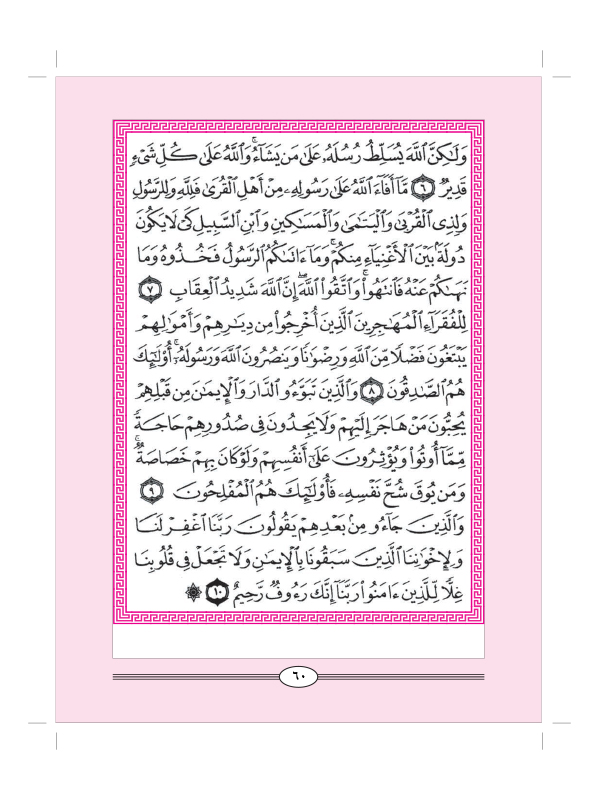 وَلَٰكِنَّ ٱللَّهَ يُسَلِّطُ رُسُلَهُۥ عَلَىٰ مَن يَشَآءُ ۚ وَٱللَّهُ عَلَىٰ كُلِّ شَىْءٍ
قَدِيرٌ ٦ مَّآ أَفَآءَ ٱللَّهُ عَلَىٰ رَسُولِهِۦ مِنْ أَهْلِ ٱلْقُرَىٰ فَلِلَّهِ وَلِلرَّسُولِ
وَلِذِى ٱلْقُرْبَىٰ وَٱلْيَتَٰمَىٰ وَٱلْمَسَٰكِينِ وَٱبْنِ ٱلسَّبِيلِ كَىْ لَا يَكُونَ
دُولَةًۢ بَيْنَ ٱلْأَغْنِيَآءِ مِنكُمْ ۚ وَمَآ ءَاتَىٰكُمُ ٱلرَّسُولُ فَخُذُوهُ وَمَا
نَهَىٰكُمْ عَنْهُ فَٱنتَهُوا۟ ۚ وَٱتَّقُوا۟ ٱللَّهَ ۖ إِنَّ ٱللَّهَ شَدِيدُ ٱلْعِقَابِ ٧
لِلْفُقَرَآءِ ٱلْمُهَٰجِرِينَ ٱلَّذِينَ أُخْرِجُوا۟ مِن دِيَٰرِهِمْ وَأَمْوَٰلِهِمْ
يَبْتَغُونَ فَضْلًا مِّنَ ٱللَّهِ وَرِضْوَٰنًا وَيَنصُرُونَ ٱللَّهَ وَرَسُولَهُۥٓ ۚ أُو۟لَٰٓئِكَ
هُمُ ٱلصَّٰدِقُونَ ٨ وَٱلَّذِينَ تَبَوَّءُو ٱلدَّارَ وَٱلْإِيمَٰنَ مِن قَبْلِهِمْ
يُحِبُّونَ مَنْ هَاجَرَ إِلَيْهِمْ وَلَا يَجِدُونَ فِى صُدُورِهِمْ حَاجَةً
مِّمَّآ أُوتُوا۟ وَيُؤْثِرُونَ عَلَىٰٓ أَنفُسِهِمْ وَلَوْ كَانَ بِهِمْ خَصَاصَةٌ ۚ
وَمَن يُوقَ شُحَّ نَفْسِهِۦ فَأُو۟لَٰٓئِكَ هُمُ ٱلْمُفْلِحُونَ ٩
وَٱلَّذِينَ جَآءُو مِنۢ بَعْدِهِمْ يَقُولُونَ رَبَّنَا ٱغْفِرْ لَنَا
وَلِإِخْوَٰنِنَا ٱلَّذِينَ سَبَقُونَا بِٱلْإِيمَٰنِ وَلَا تَجْعَلْ فِى قُلُوبِنَا
غِلًّا لِّلَّذِينَ ءَامَنُوا۟ رَبَّنَآ إِنَّكَ رَءُوفٌ رَّحِيمٌ ١٠ ۞
٦٠